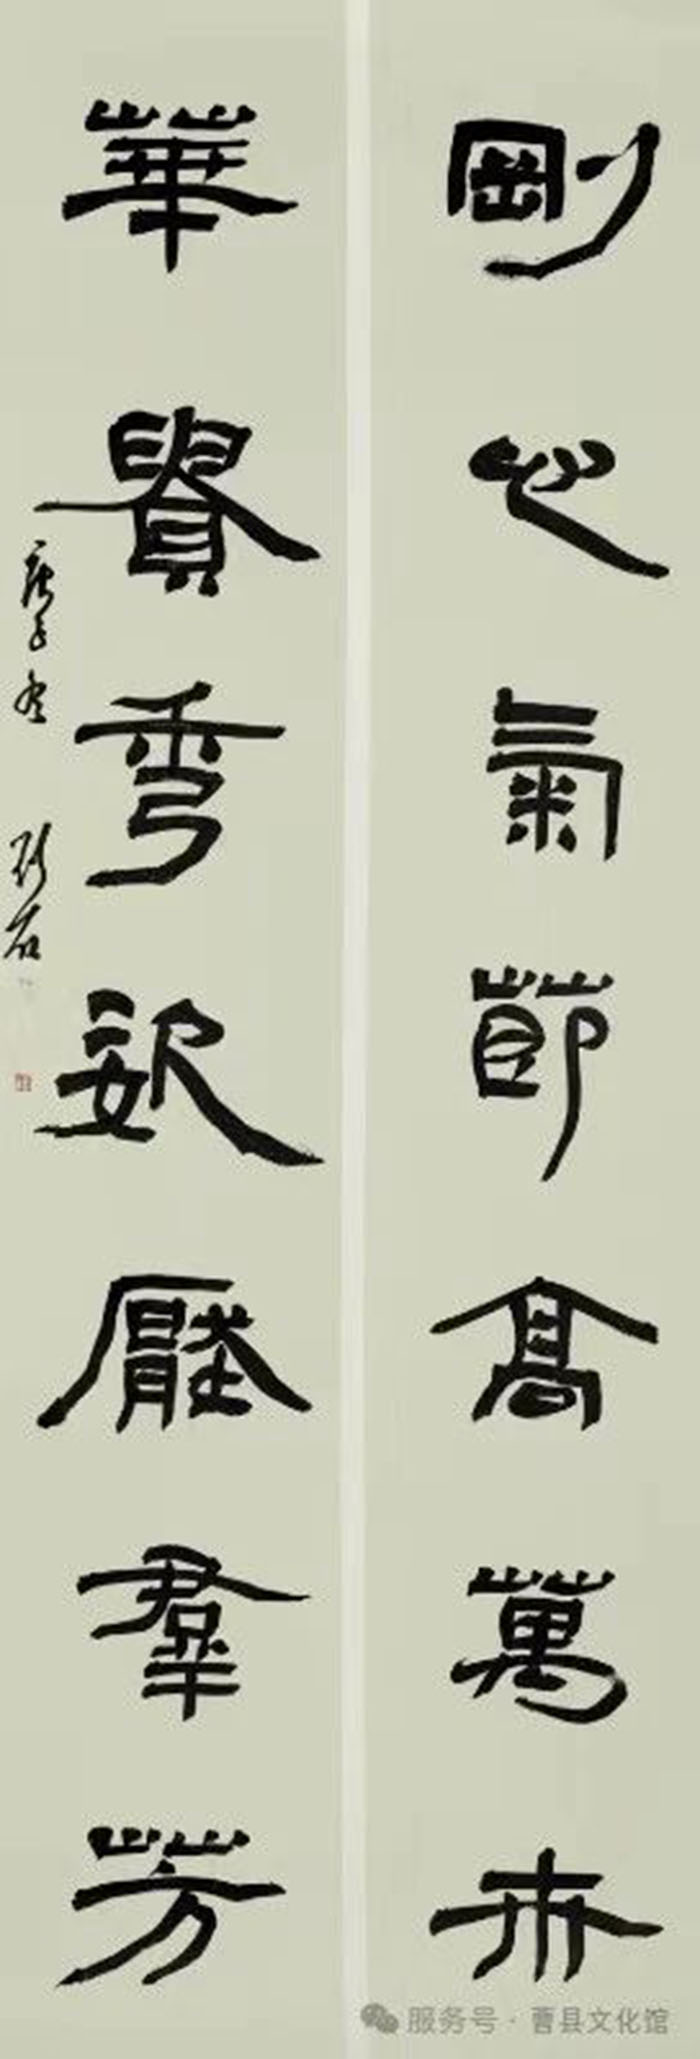 剛心氣節高萬卉
華貴秀姿壓羣芳
庚子冬
服务号 · 曹县文化馆